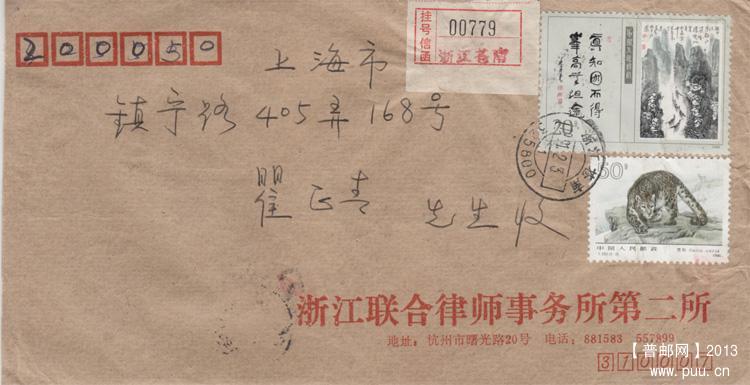 200050
挂号信函
00779
浙江苍南
上海市
镇宁路405弄168号
瞿正青 先生收
真知因不得
峯高无坦途
50分
中国人民邮政
浙江联合律师事务所第二所
地址：杭州市曙光路20号 电话：881583 557899
310007
【普邮网】2013
www.puu.cn